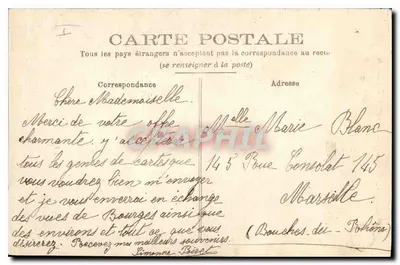 I
CARTE POSTALE
Tous les pays étrangers n'acceptent pas la correspondance au recto
(se renseigner à la poste)
Correspondance
Adresse
Chère Mademoiselle.
Merci de votre offre
charmante. j'accepte
tous les genres de cartes que
vous voudrez bien m'envoyer
et je vous enverrai en échange
des vues de Bourges ainsi que
des environs et tout ce que vous
désirerez. Recevez mes meilleurs souvenirs.
Simonne
Melle Marie Blanc
145 Rue Consolat 145
Marseille
(Bouches-du-Rhône)